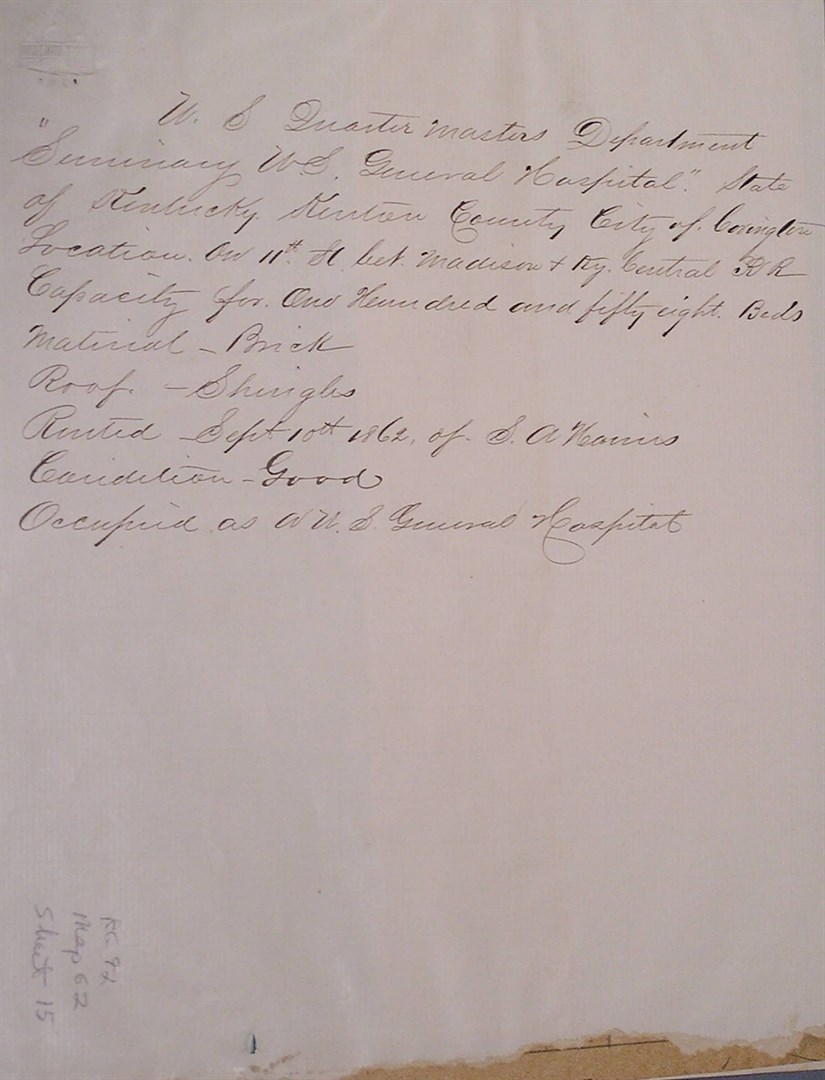 U. S Quarter Masters Department
"Seminary U.S. General Hospital". State
of Kentucky Kenton County City of. Covington
Location. On 11th St bet. Madison + Ky. Central R R
Capacity for. One Hundred and fifty eight. Beds
Material - Brick
Roof. - Shingles
Rented - Sept 10th 1862, of S. A
Condition - Good
Occupied as A U. S. General Hospital
RG 92
Map 62
Sheet 15